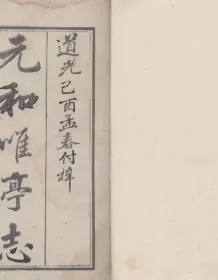 道光己酉孟春付梓
元和唯亭志